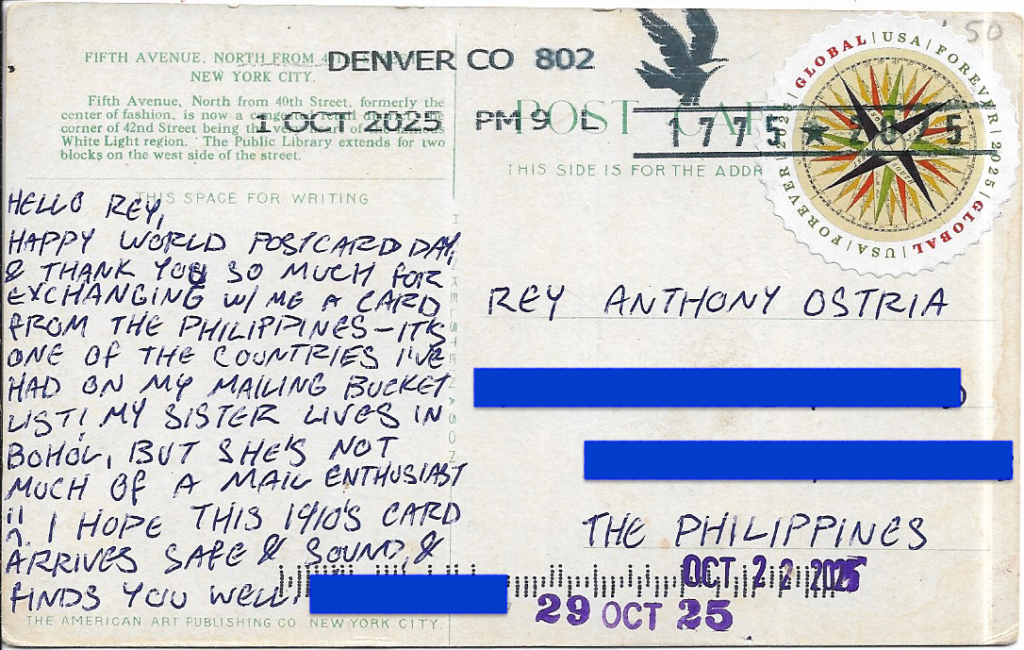 FIFTH AVENUE, NORTH FROM
NEW YORK CITY.
Fifth Avenue, North from 40th Street, formerly the
center of fashion, is now a
corner of 42nd Street being the
White Light region. The Public Library extends for two
blocks on the west side of the street.
DENVER CO 802
1 OCT 2025 PM 9 L
1775 ★ 2025
POST CAR
THIS SIDE IS FOR THE ADDR
50
GLOBAL | USA | FOREVER | 2025 | GLOBAL | USA | FOREVER | 2025
THIS SPACE FOR WRITING
HELLO REY,
HAPPY WORLD POSTCARD DAY,
& THANK YOU SO MUCH FOR
EXCHANGING W/ ME A CARD
FROM THE PHILIPPINES – IT'S
ONE OF THE COUNTRIES I'VE
HAD ON MY MAILING BUCKET
LIST! MY SISTER LIVES IN
BOHOL, BUT SHE'S NOT
MUCH OF A MAIL ENTHUSIAST
I HOPE THIS 1910'S CARD
ARRIVES SAFE & SOUND, &
FINDS YOU WELL,
THE AMERICAN ART PUBLISHING CO. NEW YORK CITY.
REY ANTHONY OSTRIA
THE PHILIPPINES
OCT 22 2025
29 OCT 25